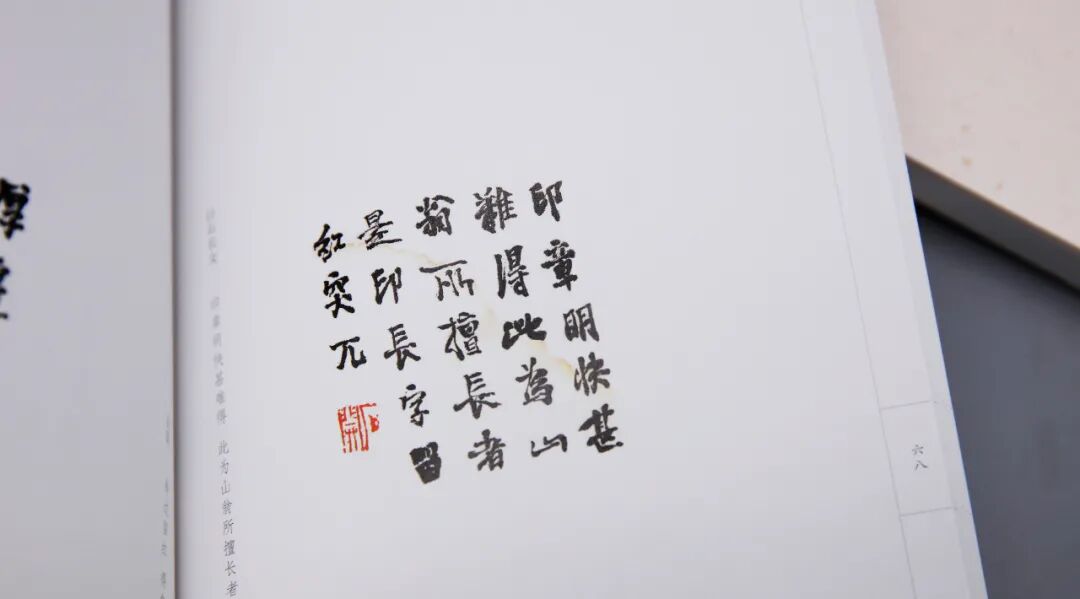 印章明快甚
難得此為山
翁所擅長者
是印長字留
紅突兀
六八
印章明快甚难得 此为山翁所擅长者